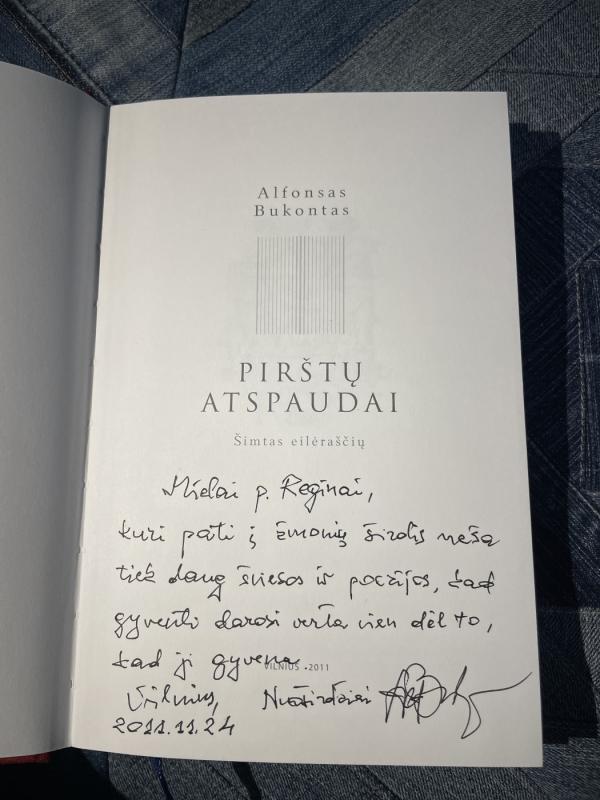 Alfonsas
Bukontas
PIRŠTŲ
ATSPAUDAI
Šimtas eilėraščių
Mielai p. Reginai,
kuri pati į žmonių širdis neša
tiek daug šviesos ir poezijos, kad
gyventi darosi verta vien dėl to,
kad ji gyvena
VILNIUS • 2011
Vilnius, Nuoširdžiai
2011.11.24